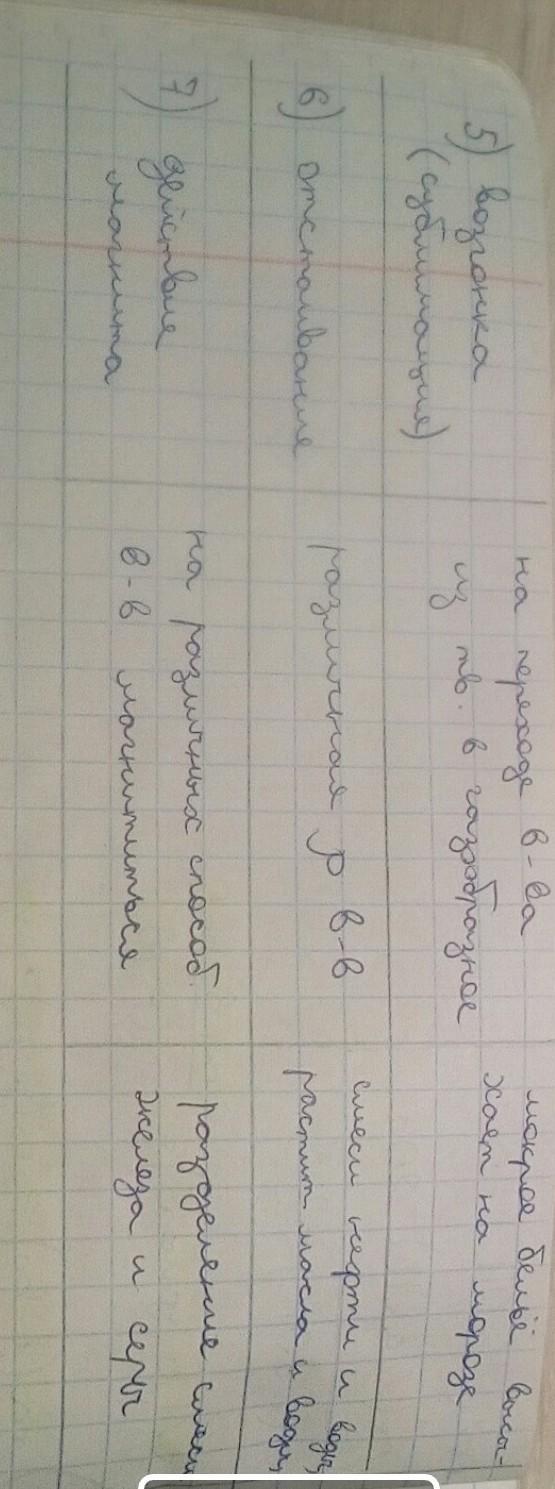 5) возгонка
(сублимация)
на переходе в-ва
из тв. в газообразное
мокрое бельё высы-
хает на морозе
6) отстаивание
различная ρ в-в
смеси нефти и воды,
растит. масла и воды,
7) действие
магнита
на различных способ.
в-в магнититься
разделение смеси
железа и серы